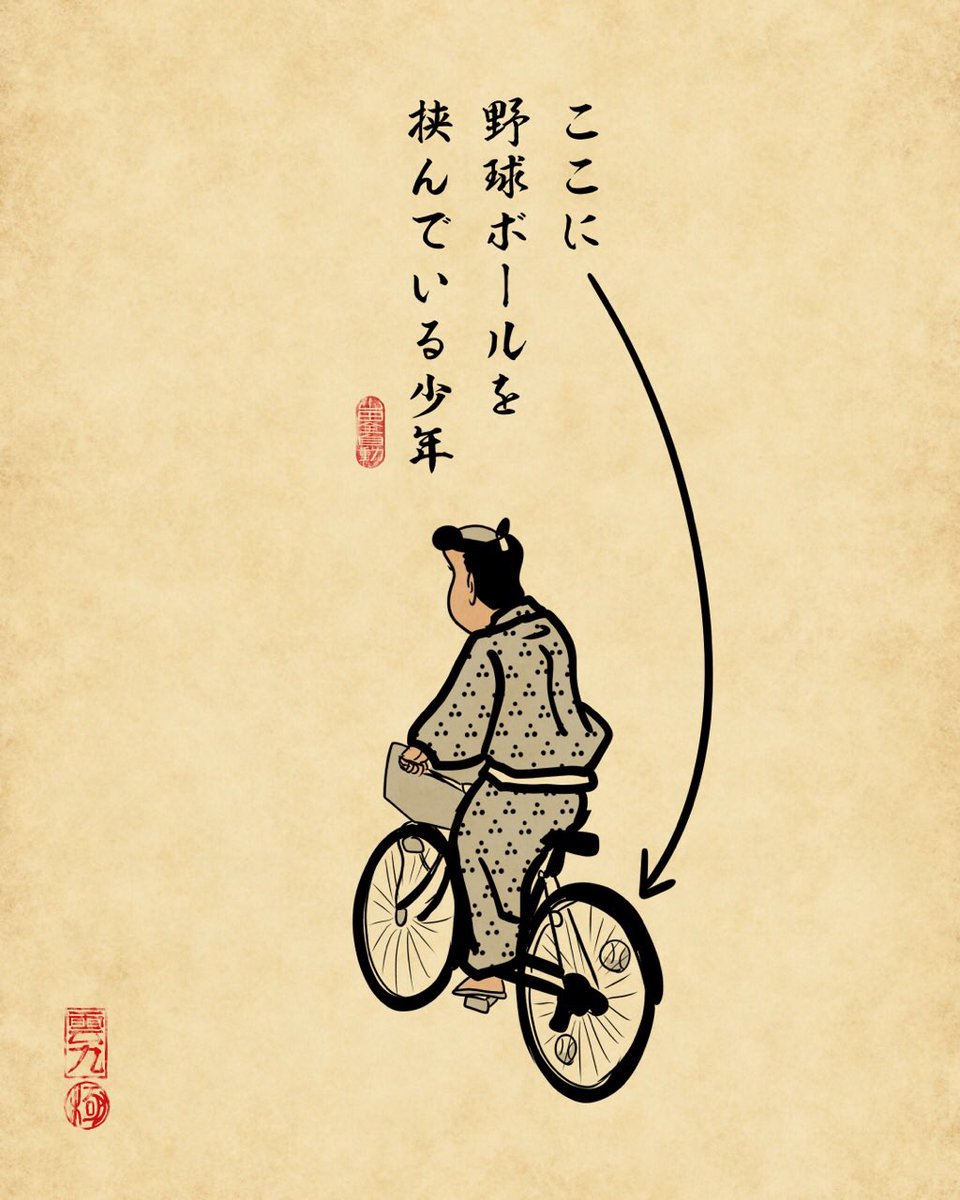 ここに
野球ボールを
挟んでいる少年